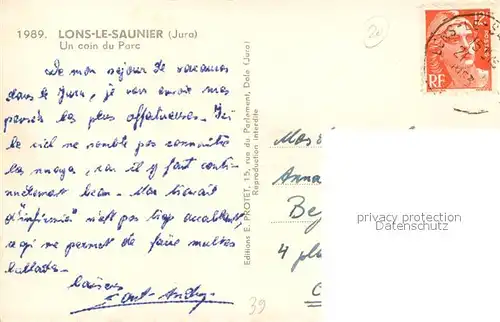 1989. LONS-LE-SAUNIER (Jura)
Un coin du Parc
De mon séjour de vacances
dans le Jura, je vous envoie mes
pensées les plus affectueuses. Ici
le ciel ne semble pas connaître
les nuages, car il y fait conti-
nuellement beau. Mon travail
d'infirmier n'est pas trop accablant,
ce qui me permet de faire multes
ballades.
baisers
Editions E. PROTET, 15, rue du Parlement, Dole (Jura)
Reproduction interdite
20
RF
Anna
Be
4 pla
39
privacy protection
by Veikkos